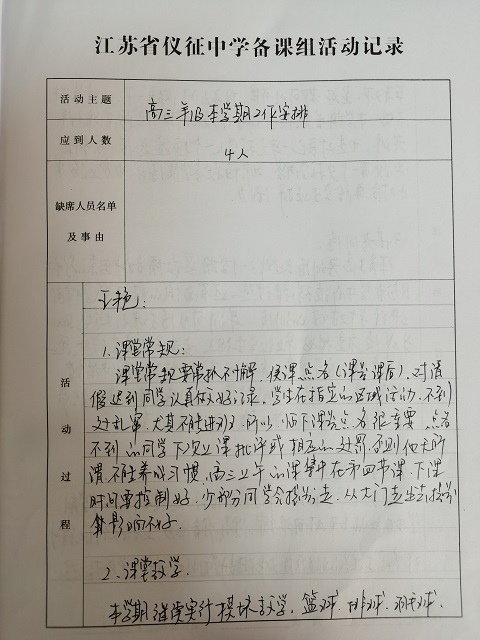 江苏省仪征中学备课组活动记录
活动主题
高三年级本学期工作安排
应到人数
4人
缺席人员名单
及事由
活动过程
王艳：
1.课堂常规：
课堂常规要常抓不懈，侯课点名（课前课后），对请
假迟到同学认真做好记录。学生在指定的区域活动，不到
处乱窜，尤其不能进班，所以临下课前点名很重要，点名
不到的同学下次上课批评或相应的处罚，否则他无所
谓不能养成习惯，高三上午的课集中在第四节课，下课
时间要控制好，少部分同学会提前走，从大门走出去提前
影响不好。
2、课堂教学。
本学期继续实行模块教学，篮球、排球、羽球、